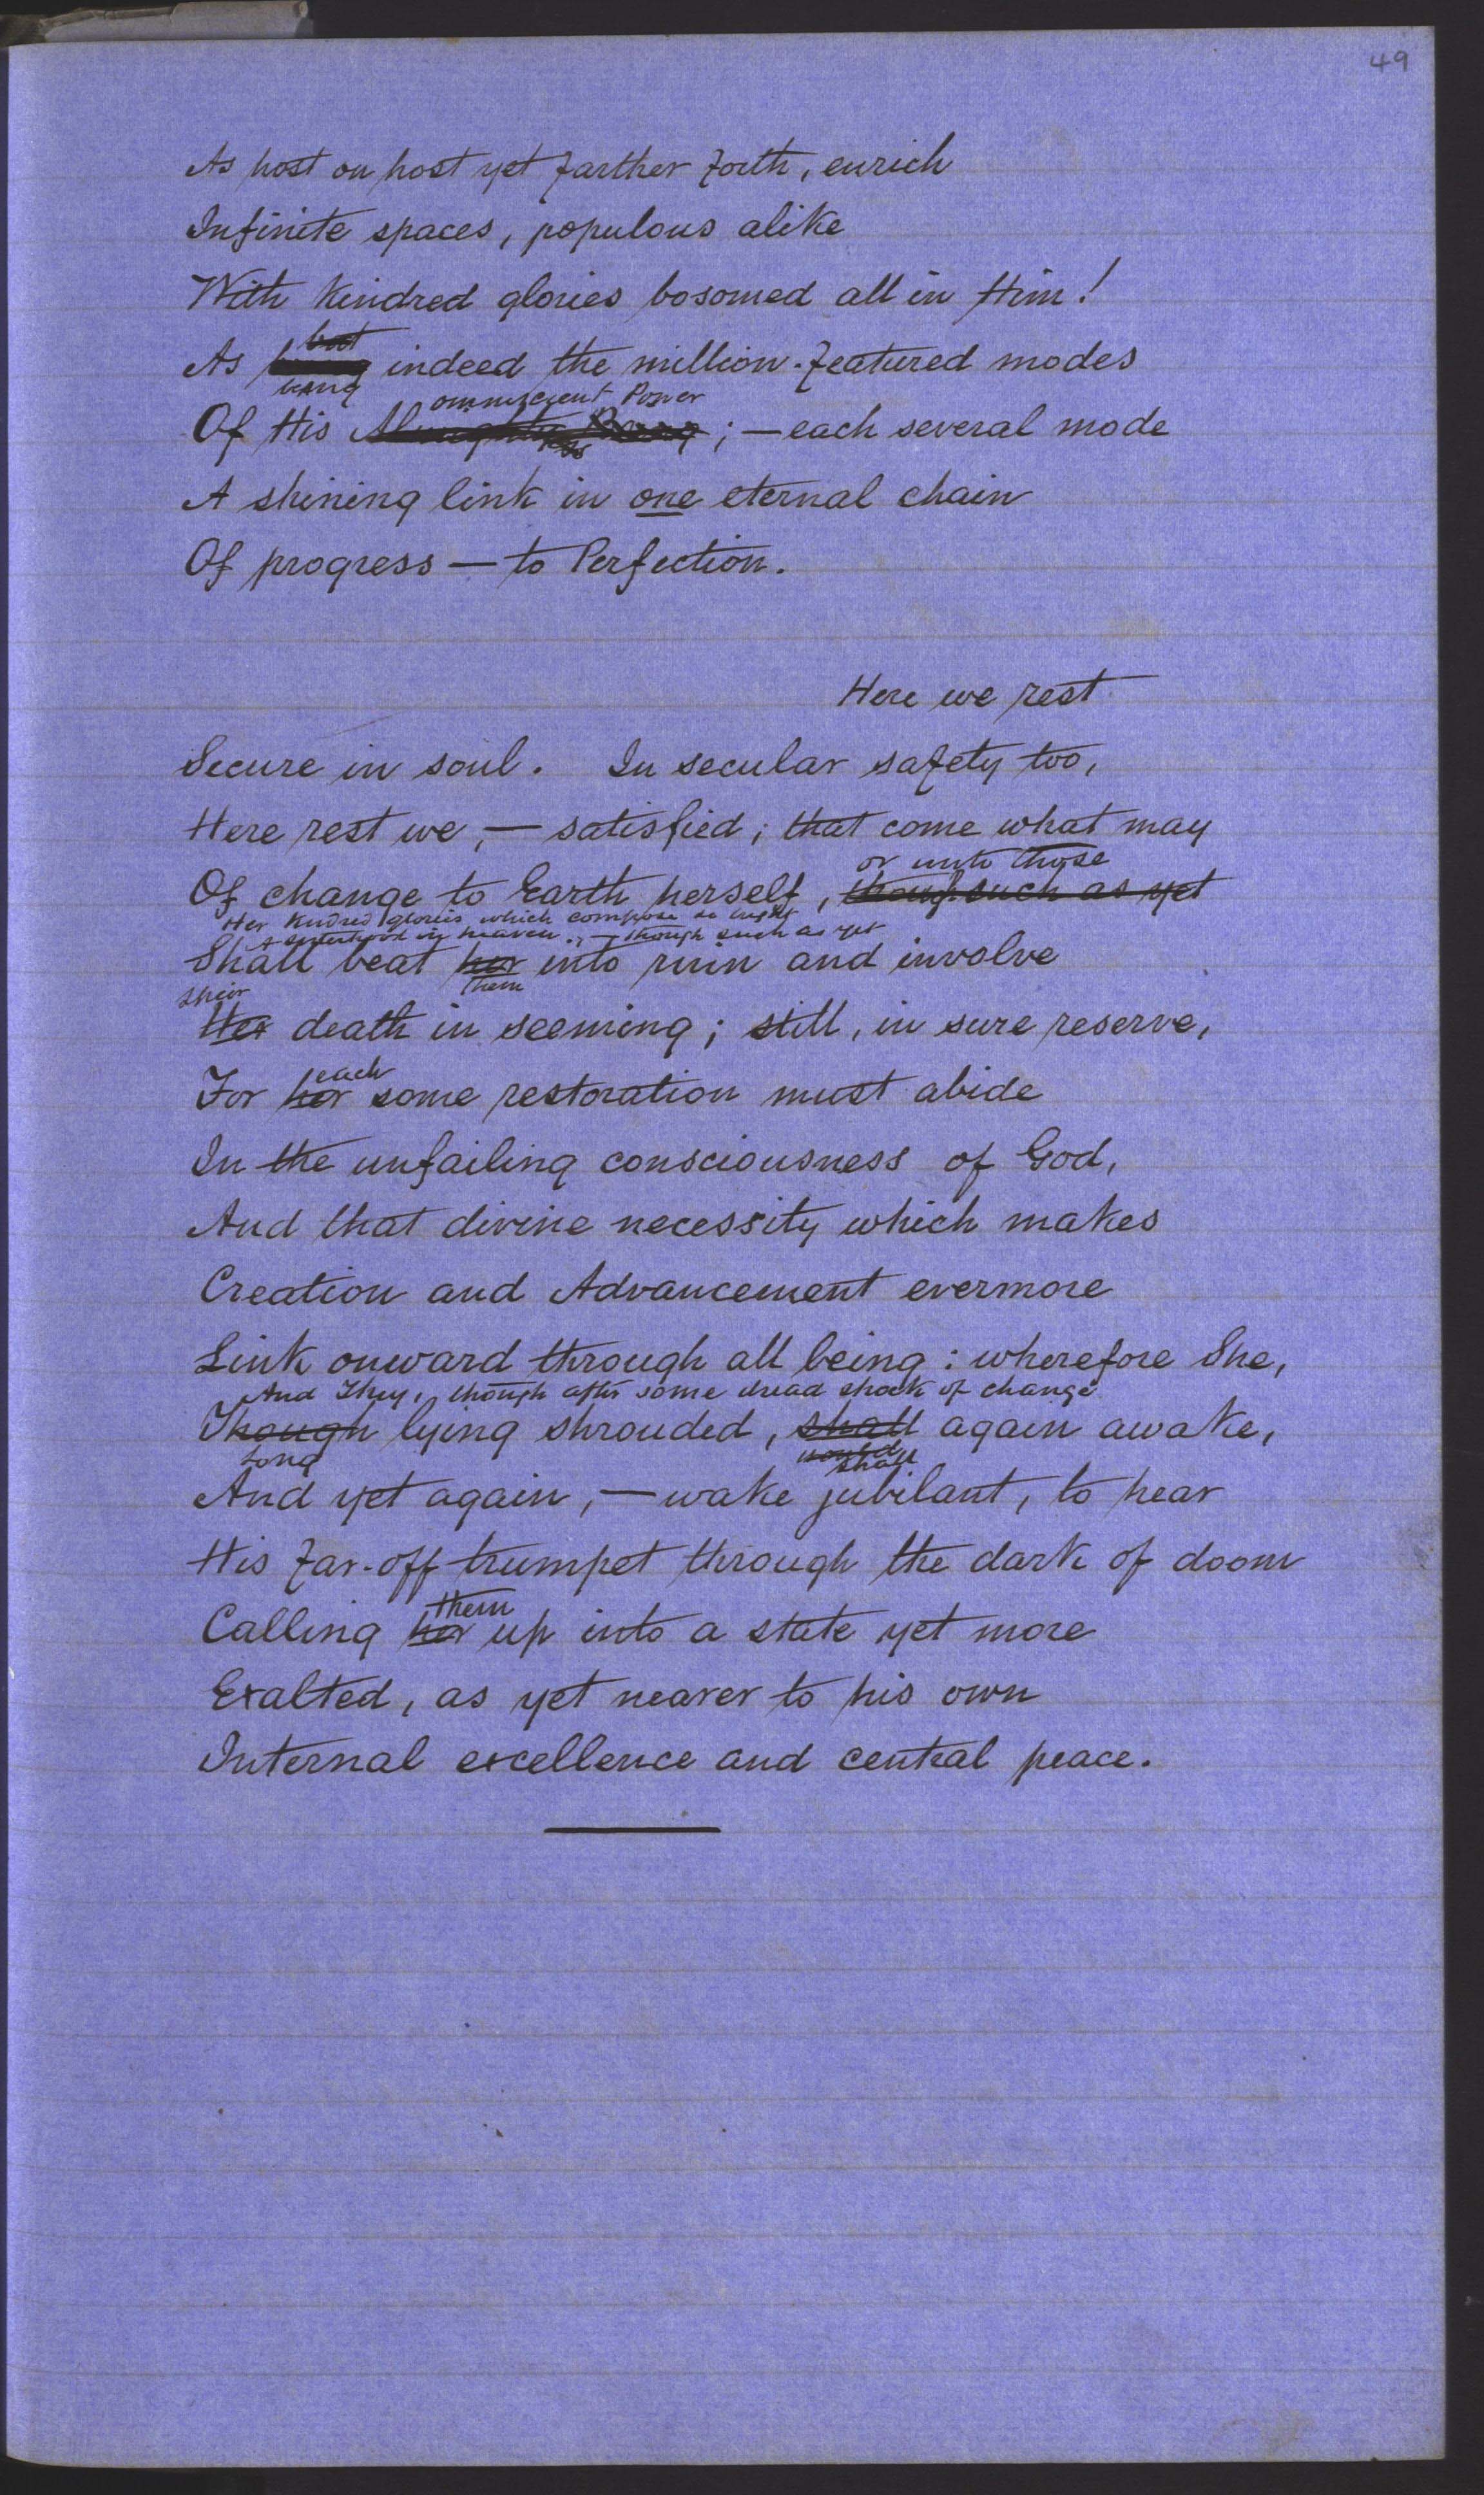 49
As host on host yet farther forth, enrich
Infinite spaces, populous alike
With kindred glories bosomed all in Him!
but
As being indeed the million-featured modes
being
omniscient Power
Of His Almighty Being; — each several mode
A shining link in one eternal chain
Of progress — to Perfection.
Here we rest
Secure in soul. In secular safety too,
Here rest we, — satisfied; that come what may
or unto those
Of change to Earth herself, though such as yet
Her kindred glories which compose so bright
A sisterhood in heaven, — though such as yet
Shall beat her into ruin and involve
them
Their
Her death in seeming; still, in sure reserve,
each
For her some restoration must abide
In the unfailing consciousness of God,
And that divine necessity which makes
Creation and Advancement evermore
Link onward through all being: wherefore She,
And They, though after some dread shock of change
Though lying shrouded, shall again awake,
Long would
shall
And yet again, — wake jubilant, to hear
His far-off trumpet through the dark of doom
them
Calling her up into a state yet more
Exalted, as yet nearer to his own
Internal excellence and central peace.